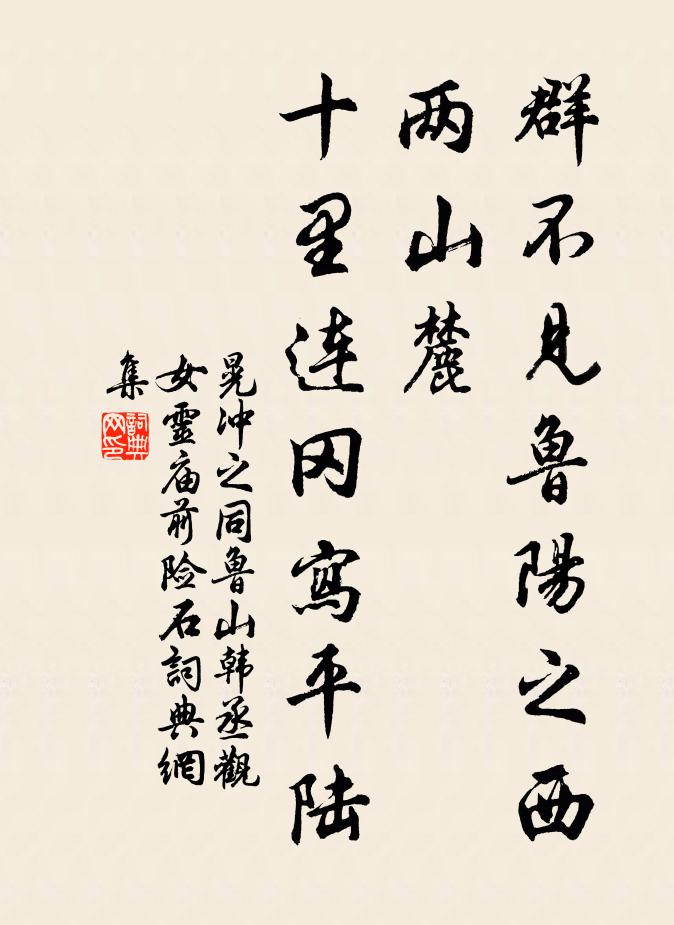 群不见鲁陽之西
两山麓
十里连冈寫平陆
晃沖之同鲁山韩丞觀
女靈庙前险石詞典網
集
詞典网印